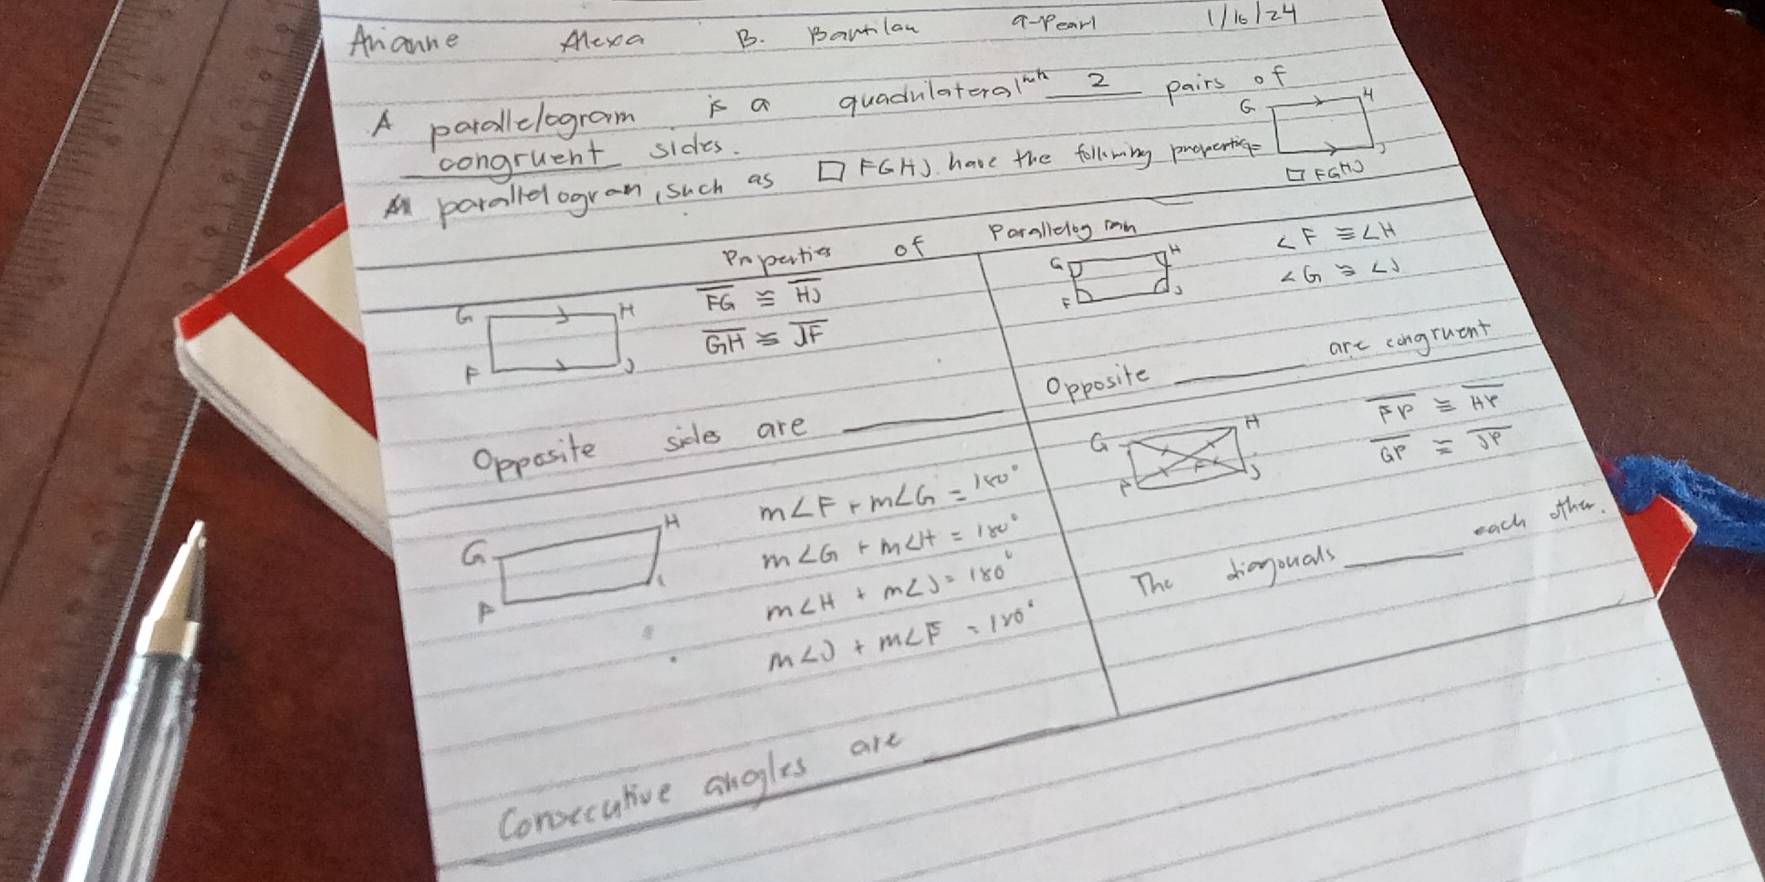 Arianne Alexa B. Bantilan 9-Pearl 1/16/24
A parallelogram is a quadrilateral with 2 pairs of
congruent sides.
parallelogram, such as □ FGHJ have the following properties
G H
J
□ FGHJ
Properties of Parallelogram
G H
F J
FG ≅ HJ
GH ≅ JF
Opposite sides are ______
G H
F J
∠F ≅ ∠H
∠G ≅ ∠J
Opposite ______ are congruent
G H
F
m∠F + m∠G = 180°
m∠G + m∠H = 180°
m∠H + m∠J = 180°
m∠J + m∠F = 180°
Consecutive angles are ______
G H
F J
FP ≅ HP
GP ≅ JP
The diagonals ______ each other.